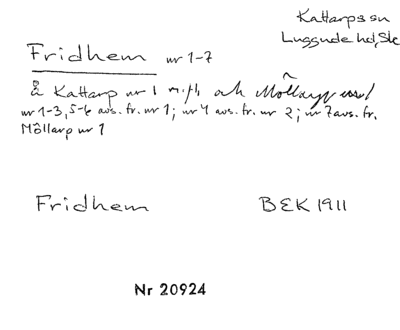 Kattarps sn
Luggude hd, Sk
Fridhem nr 1-7
å Kattarp nr 1 m.fl. och Möllarp
nr 1-3, 5-6 avs. fr. nr 1; nr 4 avs. fr. nr 2; nr 7 avs. fr.
Möllarp nr 1
Fridhem BEK 1911
Nr 20924